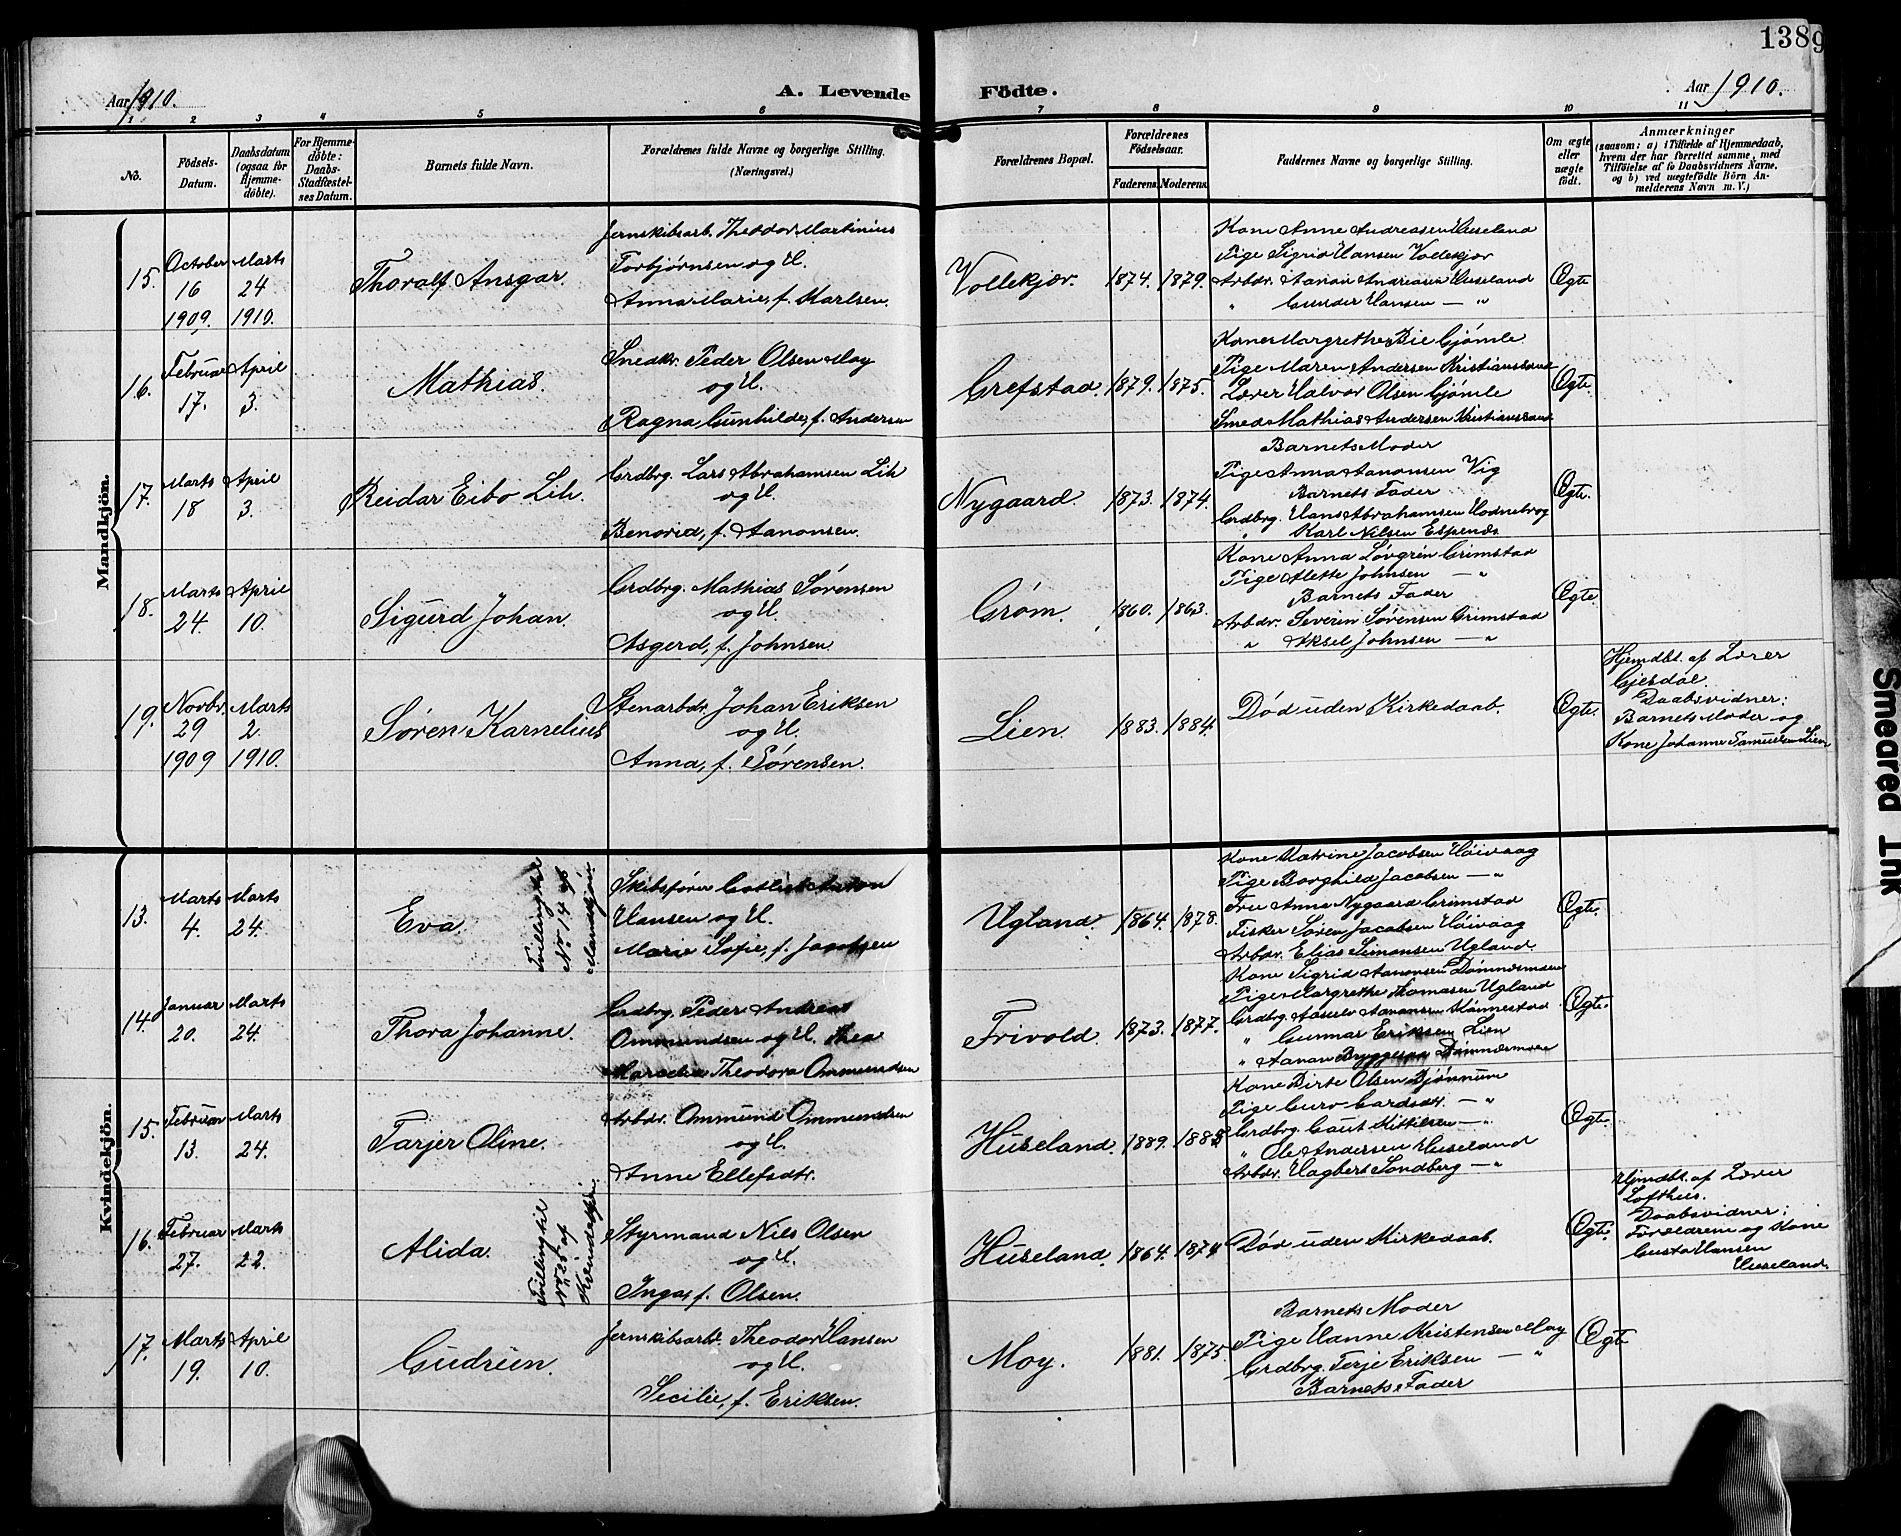 1389
Aar 1910.
A. Levende Födte.
Aar 1910.
1 2 3 4 5 6 7 8 9 10 11
No.
Födsels-Datum.
Daabsdatum (ogsaa for Hjemmedöbte).
For Hjemmedöbte: Daabs-Stadfæstelses Datum.
Barnets fulde Navn.
Forældrenes fulde Navne og borgerlige Stilling. (Næringsvei.)
Forældrenes Bopæl.
Forældrenes Födselsaar.
Faderens Moderens
Faddernes Navne og borgerlige Stilling.
Om ægte eller uægte født.
Anmærkninger
(saasom: a) i Tilfælde af Hjemmedaab, hvem der har forrettet samme, med Tilföielse af to Daabsvidners Navne, og b) ved uægtefödte Börn Anmelderens Navn m. V.)
Mandkjön.
15.
October 16 1909.
Marts 24 1910.
Thoralf Ansgar.
Jernskibsarb. Theodor Martinius
Torbjørnsen og H.
Anna Marie, f. Karlsen.
Vollekjær. 1874. 1879.
Kone Anne Andreasen Huseland
Pige Sigrid Hansen Vollekjær
Arbdr. Aanon Andreasen Huseland
" Gunder Hansen — "
Ægte
16.
Februar 17.
April 3.
Mathias.
Snedkr. Peder Olsen Moy
og H.
Ragna Gunhilde, f. Andersen
Grefstad. 1879. 1875.
Kone Margrethe Bie Gjømle
Pige Maren Andersen Kristianssand
Lærer Halvor Olsen Gjømle
Smed Mathias Andersen Kristianssand
Ægte.
17.
Marts 18
April 3.
Reidar Eibo Lih.
Grdbrg. Lars Abrahamsen Lih
og H.
Benorid, f. Aanonsen.
Nygaard. 1873. 1874.
Barnets Moder
Pige Anna Aanonsen Vig
Barnets Fader
Grdbrg. Hans Abrahamsen Hodnebrog
" Karl Nilsen Espenes
Ægte.
18.
Marts 24.
April 10.
Sigurd Johan.
Grdbrg. Mathias Sørensen
og H.
Asgerd, f. Johnsen.
Grøm. 1860. 1863.
Kone Anna Løvgren Grimstad
Pige Alette Johnsen — "
Barnets Fader
Arbdr. Severin Sørensen Grimstad
" Aksel Johnsen — "
Ægte.
19.
Novbr. 29 1909
Marts 2. 1910.
Søren Karnelius
Stenarbdr. Johan Eriksen
og H.
Anna, f. Sørensen.
Lien. 1883. 1884.
Død uden Kirkedaab.
Ægte.
Hjemdbt. af Lærer
Gjesdal.
Daabsvidner:
Barnets Moder og
Kone Johanne Samuelsen Lien
Kvindekjön.
13.
Marts 4.
Marts 24.
Eva.
Tvilling til
No. 14 af
Mandkjön.
Skibsfører Gotlieb Anton
Hansen og H.
Marie Sofie, f. Jacobsen
Ugland. 1864. 1878.
Kone Katrine Jacobsen Høivaag
Pige Borghild Jacobsen — "
Fru Anna Nygaard Grimstad
Fisker Søren Jacobsen Høivaag
Arbdr. Elias Simonsen Ugland.
Ægte.
14.
Januar 20.
Marts 24.
Thora Johanne.
Grdbrg. Peder Andreas
Ommundsen og H. Thea
Marcelie Theodora Ommundsen
Frivold. 1873. 1877.
Kone Sigrid Aanonsen Dømnesmoen
Pige Margrethe Thomasen Ugland
Grdbrg. Aanonsen
" Gunnar Eriksen Lien
" Aanon Bryggesaa Dømnesmoen
Ægte.
15.
Februar 13.
Marts 24.
Tarjer Oline.
Arbdr. Ommund Ommundsen
og H.
Anne Ellefsdtr.
Huseland. 1889. 1885
Kone Birte Olsen Bjønnum
Pige Guro Gardsdtr. — "
Grdbrg. Gaut Kittilsen — "
" Ole Andersen Huseland
Arbdr. Hagbert Sondberg — "
Ægte.
16.
Februar 27.
Marts 22.
Alida.
Tvilling til
No. 25 af
Kvindekjön.
Styrmand Nils Olsen
og H.
Inga, f. Olsen.
Huseland. 1864. 1874
Død uden Kirkedaab.
Ægte.
Hjemdbt. af Lærer
Lofthus.
Daabsvidner:
Forældrene og Kone
Gusta Hansen
Huseland.
17.
Marts 19.
April 10.
Gudrun.
Jernskibsarbr. Theodor Hansen
og H.
Secilie, f. Eriksen.
Moy. 1881. 1875.
Barnets Moder
Pige Hanne Kristensen Moy
Grdbrg. Terje Eriksen — "
Barnets Fader
Ægte
Smeared Ink